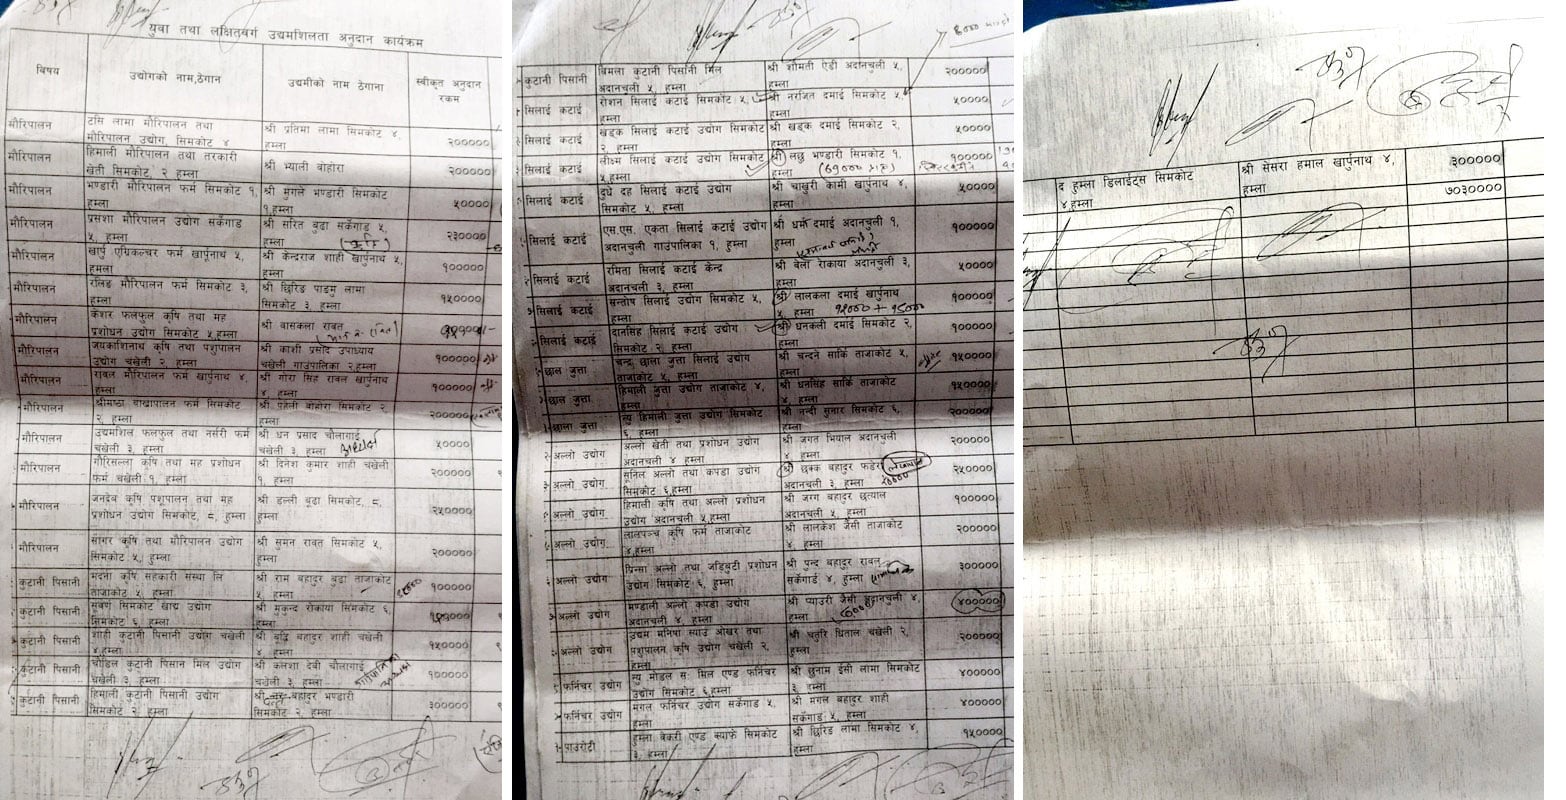 युवा तथा लक्षितवर्ग उद्यमशिलता अनुदान कार्यक्रम
विषय उद्योगको नाम,ठेगान उद्यमीको नाम ठेगाना स्वीकृत अनुदान रकम
मौरिपालन टसि लामा मौरिपालन तथा मौरिपालन उद्योग, सिमकोट ४ श्री प्रतिमा लामा सिमकोट ४, हुम्ला २०००००
मौरिपालन हिमाली मौरिपालन तथा तरकारी खेती सिमकोट, २ हुम्ला श्री भ्याली बोहोरा २०००००
मौरिपालन भण्डारी मौरिपालन फर्म सिमकोट १, हुम्ला श्री मुगले भण्डारी सिमकोट १,हुम्ला ५००००
मौरिपालन प्रसंशा मौरिपालन उद्योग सर्केगाड ५, हुम्ला श्री सरित बुढा सर्केगाड ५, हुम्ला २३००००
मौरिपालन खार्पु एग्रिकल्चर फर्म खार्पुनाथ ५, हुमला श्री केन्द्रराज शाही खार्पुनाथ ५, हुम्ला १०००००
मौरिपालन रलिङ मौरिपालन फर्म सिमकोट ३, हुम्ला श्री छिरिङ पाङमु लामा सिमकोट ३, हुम्ला १५००००
मौरिपालन केशर फलफुल कृषि तथा मह प्रशोधन उद्योग सिमकोट ५,हुम्ला श्री बासकला रावत
मौरिपालन जयकाशिनाथ कृषि तथा पशुपालन उद्योग चंखेली २ हुम्ला श्री काशी प्रसाद उपाध्याय चंखेली गाउंपालिका २,हुम्ला १०००००
मौरिपालन रावल मौरिपालन फर्म खार्पुनाथ ४, हुम्ला श्री गोरा सिंह रावल खार्पुनाथ ४, हुम्ला १०००००
मौरिपालन श्रीमाष्ठा बाख्रापालन फर्म सिमकोट २, हुम्ला श्री पहेली बोहोरा सिमकोट २, हुम्ला २०००००
मौरिपालन उद्यमशिल फलफुल तथा नर्सरी फर्म चंखेली ३, हुम्ला श्री धन प्रसाद चौलागाई चंखेली ३, हुम्ला ५००००
मौरिपालन गौरिसल्ला कृषि तथा मह प्रशोधन फर्म चंखेली १, हुम्ला श्री दिनेश कुमार शाही चंखेली १, हुम्ला २०००००
मौरिपालन जनदेब कृषि पशुपालन तथा मह प्रशोधन उद्योग सिमकोट, ८, हुम्ला श्री डल्ली बूढा सिमकोट, ८, हुम्ला २५००००
मौरिपालन सागर कृषि तथा मौरिपालन उद्योग सिमकोट ५, हुम्ला श्री सुमन रावत सिमकोट ५, हुम्ला २०००००
कुटानी पिसानी मदना कृषि सहकारी संस्था लि ताजाकोट ५, हुम्ला श्री राम बहादुर बुढा ताजाकोट ५, हुम्ला १०००००
कुटानी पिसानी सुबर्ण सिमकोट खाद्य उद्योग सिमकोट ६, हुम्ला श्री मुकुन्द रोकाया सिमकोट ६, हुम्ला
कुटानी पिसानी शाही कुटानी पिसानी उद्योग चंखेली ४,हुम्ला श्री बुद्धि बहादुर शाही चंखेली ४, हुम्ला १५००००
कुटानी पिसानी चौंडिल कुटानी पिसान मिल उद्योग चंखेली ३, हुम्ला श्री कलशा देवी चौलागाई चंखेली ३, हुम्ला १०००००
कुटानी पिसानी हिमाली कुटानी पिसानी उद्योग सिमकोट २, हुम्ला श्री बहादुर भण्डारी सिमकोट २, हुम्ला ३०००००
कुटानी पिसानी बिमला कुटानी पिसानी मिल अदानचुली ५, हुम्ला श्री शोमती ऐडी अदानचुली ५, हुम्ला २०००००
सिलाई कटाई रोशन सिलाई कटाई सिमकोट ५, हुम्ला श्री नरजित दमाई सिमकोट ५, हुम्ला ५००००
सिलाई कटाई खड्क सिलाई कटाई उद्योग सिमकोट २, हुम्ला श्री खड्क दमाई सिमकोट २, हुम्ला ५००००
सिलाई कटाई लक्ष्मि सिलाई कटाई उद्योग सिमकोट ५,हुम्ला श्री लछु भण्डारी सिमकोट १, हुम्ला १०००००
सिलाई कटाई दुधे दह सिलाई कटाई उद्योग सिमकोट ५, हुम्ला श्री चाखुरी कामी खार्पुनाथ ४, हुम्ला ५००००
सिलाई कटाई एस.एस. एकता सिलाई कटाई उद्योग अदानचुली गाउंपालिका १, हुम्ला श्री धर्म दमाई अदानचुली १, हुम्ला १०००००
सिलाई कटाई रमिता सिलाई कटाई केन्द्र अदानचुली ३, हुम्ला श्री बेली रोकाया अदानचुली ३, हुम्ला ५००००
सिलाई कटाई सन्तोष सिलाई उद्योग सिमकोट ५, हुम्ला श्री लालकला दमाई खार्पुनाथ ५, हुम्ला १०००००
सिलाई कटाई दानसिंह सिलाई कटाई उद्योग सिमकोट २, हुम्ला श्री धनकली दमाई सिमकोट २, हुम्ला १०००००
छाला जुत्ता चन्द्र छाला जुत्ता सिलाई उद्योग ताजाकोट ५, हुम्ला श्री चन्दने सार्कि ताजाकोट ५, हुम्ला १५००००
छाला जुत्ता हिमाली जुत्ता उद्योग ताजाकोट ४, हुम्ला श्री धनसिंह सार्कि ताजाकोट ४, हुम्ला १५००००
छाला जुत्ता न्यु हिमाली जुत्ता उद्योग सिमकोट ६, हुम्ला श्री नन्दी सुनार सिमकोट ६, हुम्ला २०००००
अल्लो उद्योग अल्लो खेती तथा प्रशोधन उद्योग अदानचुली ४ हुम्ला श्री जगत भियाल अदानचुली ४, हुम्ला २०००००
अल्लो उद्योग सुनिल अल्लो तथा कपडा उद्योग सिमकोट ६,हुम्ला श्री छक्क बहादुर फडेरा अदानचुली ३, हुम्ला २५००००
अल्लो उद्योग हिमाली कृषि तथा अल्लो प्रशोधन उद्योग अदानचुली ५,हुम्ला श्री जरग बहादुर छत्याल अदानचुली ५, हुम्ला १०००००
अल्लो उद्योग लालपञ्च कृषि फर्म ताजाकोट ४,हुम्ला श्री लालकेश जैसी ताजाकोट ४, हुम्ला २०००००
अल्लो उद्योग प्रिन्सा अल्लो तथा जडिबुटी प्रशोधन उद्योग सिमकोट ६, हुम्ला श्री पुन्द बहादुर रावल सर्केगाड ४, हुम्ला ३०००००
अल्लो उद्योग मण्डाली अल्लो कपडा उद्योग अदानचुली ४, हुम्ला श्री प्याउरी जैसी अदानचुली ४, हुम्ला ४०००००
अल्लो उद्योग उद्यम मनिषा स्याउ ओखर तथा पशुपालन कृषि उद्योग चंखेली २, हुम्ला श्री चतुरि धिताल चंखेली २, हुम्ला २०००००
फर्निचर उद्योग न्यु मोडल स: मिल एण्ड फर्निचर उद्योग सिमकोट ६,हुम्ला श्री छुनाम ईसी लामा सिमकोट ३, हुम्ला ४०००००
फर्निचर उद्योग मंगल फर्निचर उद्योग सर्केगाड ५, हुम्ला श्री मंगल बहादुर शाही सर्केगाड ५, हुम्ला ४०००००
पाउरोटी हुम्ला बेकरी एण्ड क्याफे सिमकोट ३, हुम्ला श्री छिरिङ लामा सिमकोट ४, हुम्ला १५००००
द हुम्ला डिलाईट्स सिमकोट ४,हुम्ला श्री सेसरा हमाल खार्पुनाथ ४, हुम्ला ३०००००
७०३००००